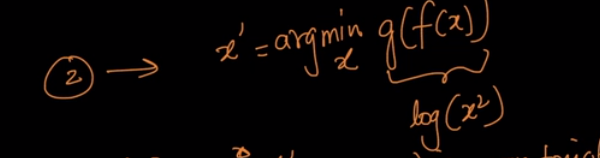 ② → x' = argmin g(f(x))
x
log(x²)